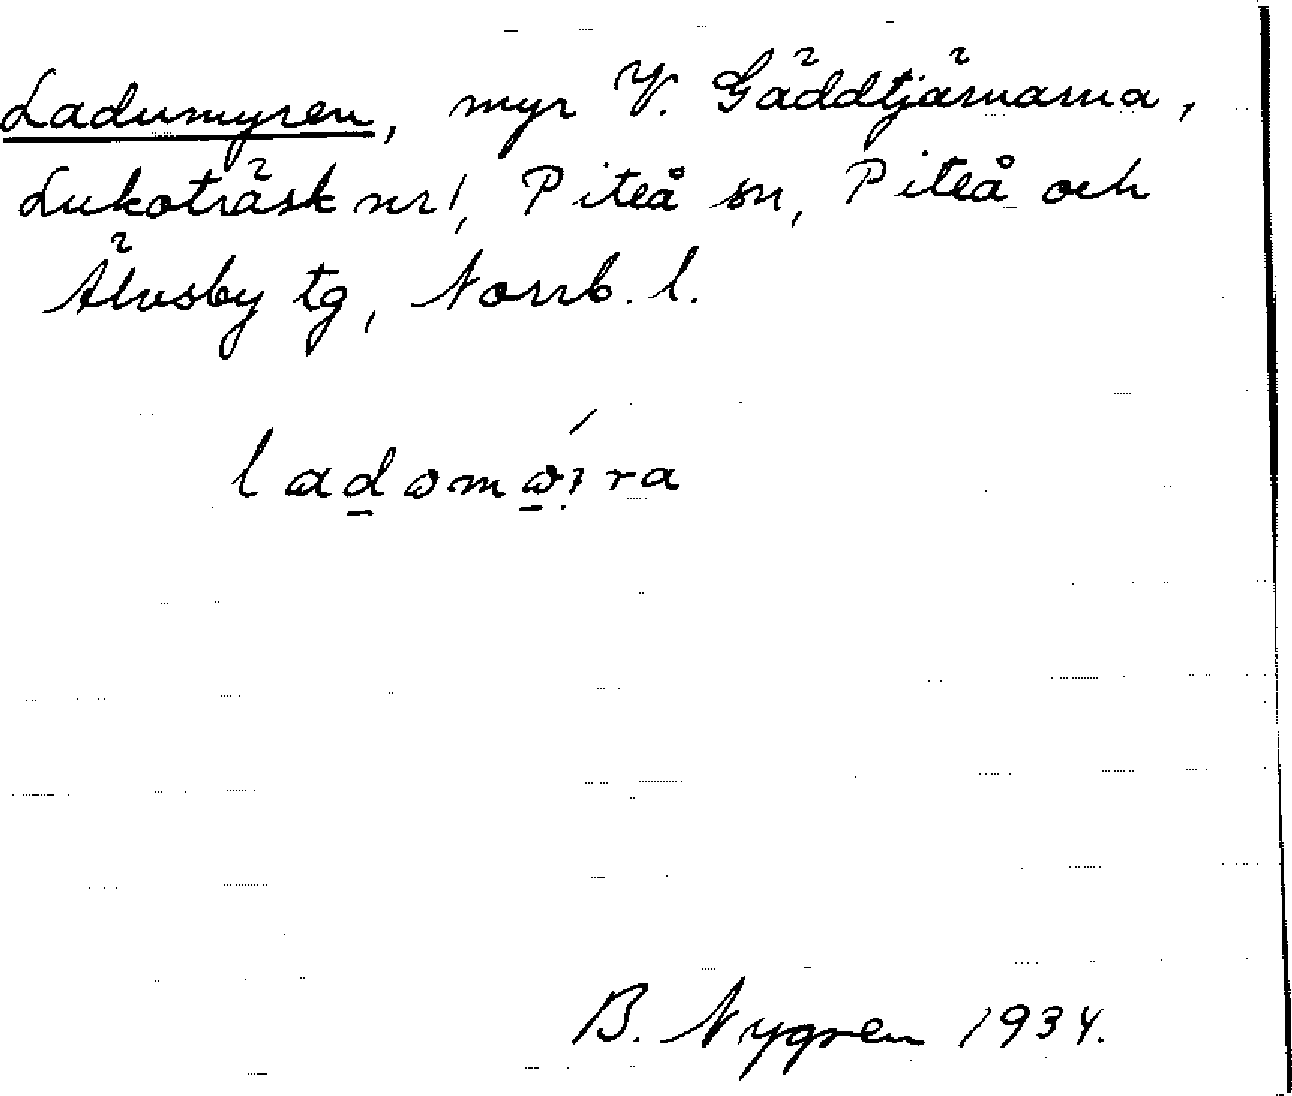 Ladumyren, myr V. Gäddtjärnarna,
Lukoträsk nr 1, Piteå sn, Piteå och
Älvsby tg, Norrb. l.
B. Nygren 1934.